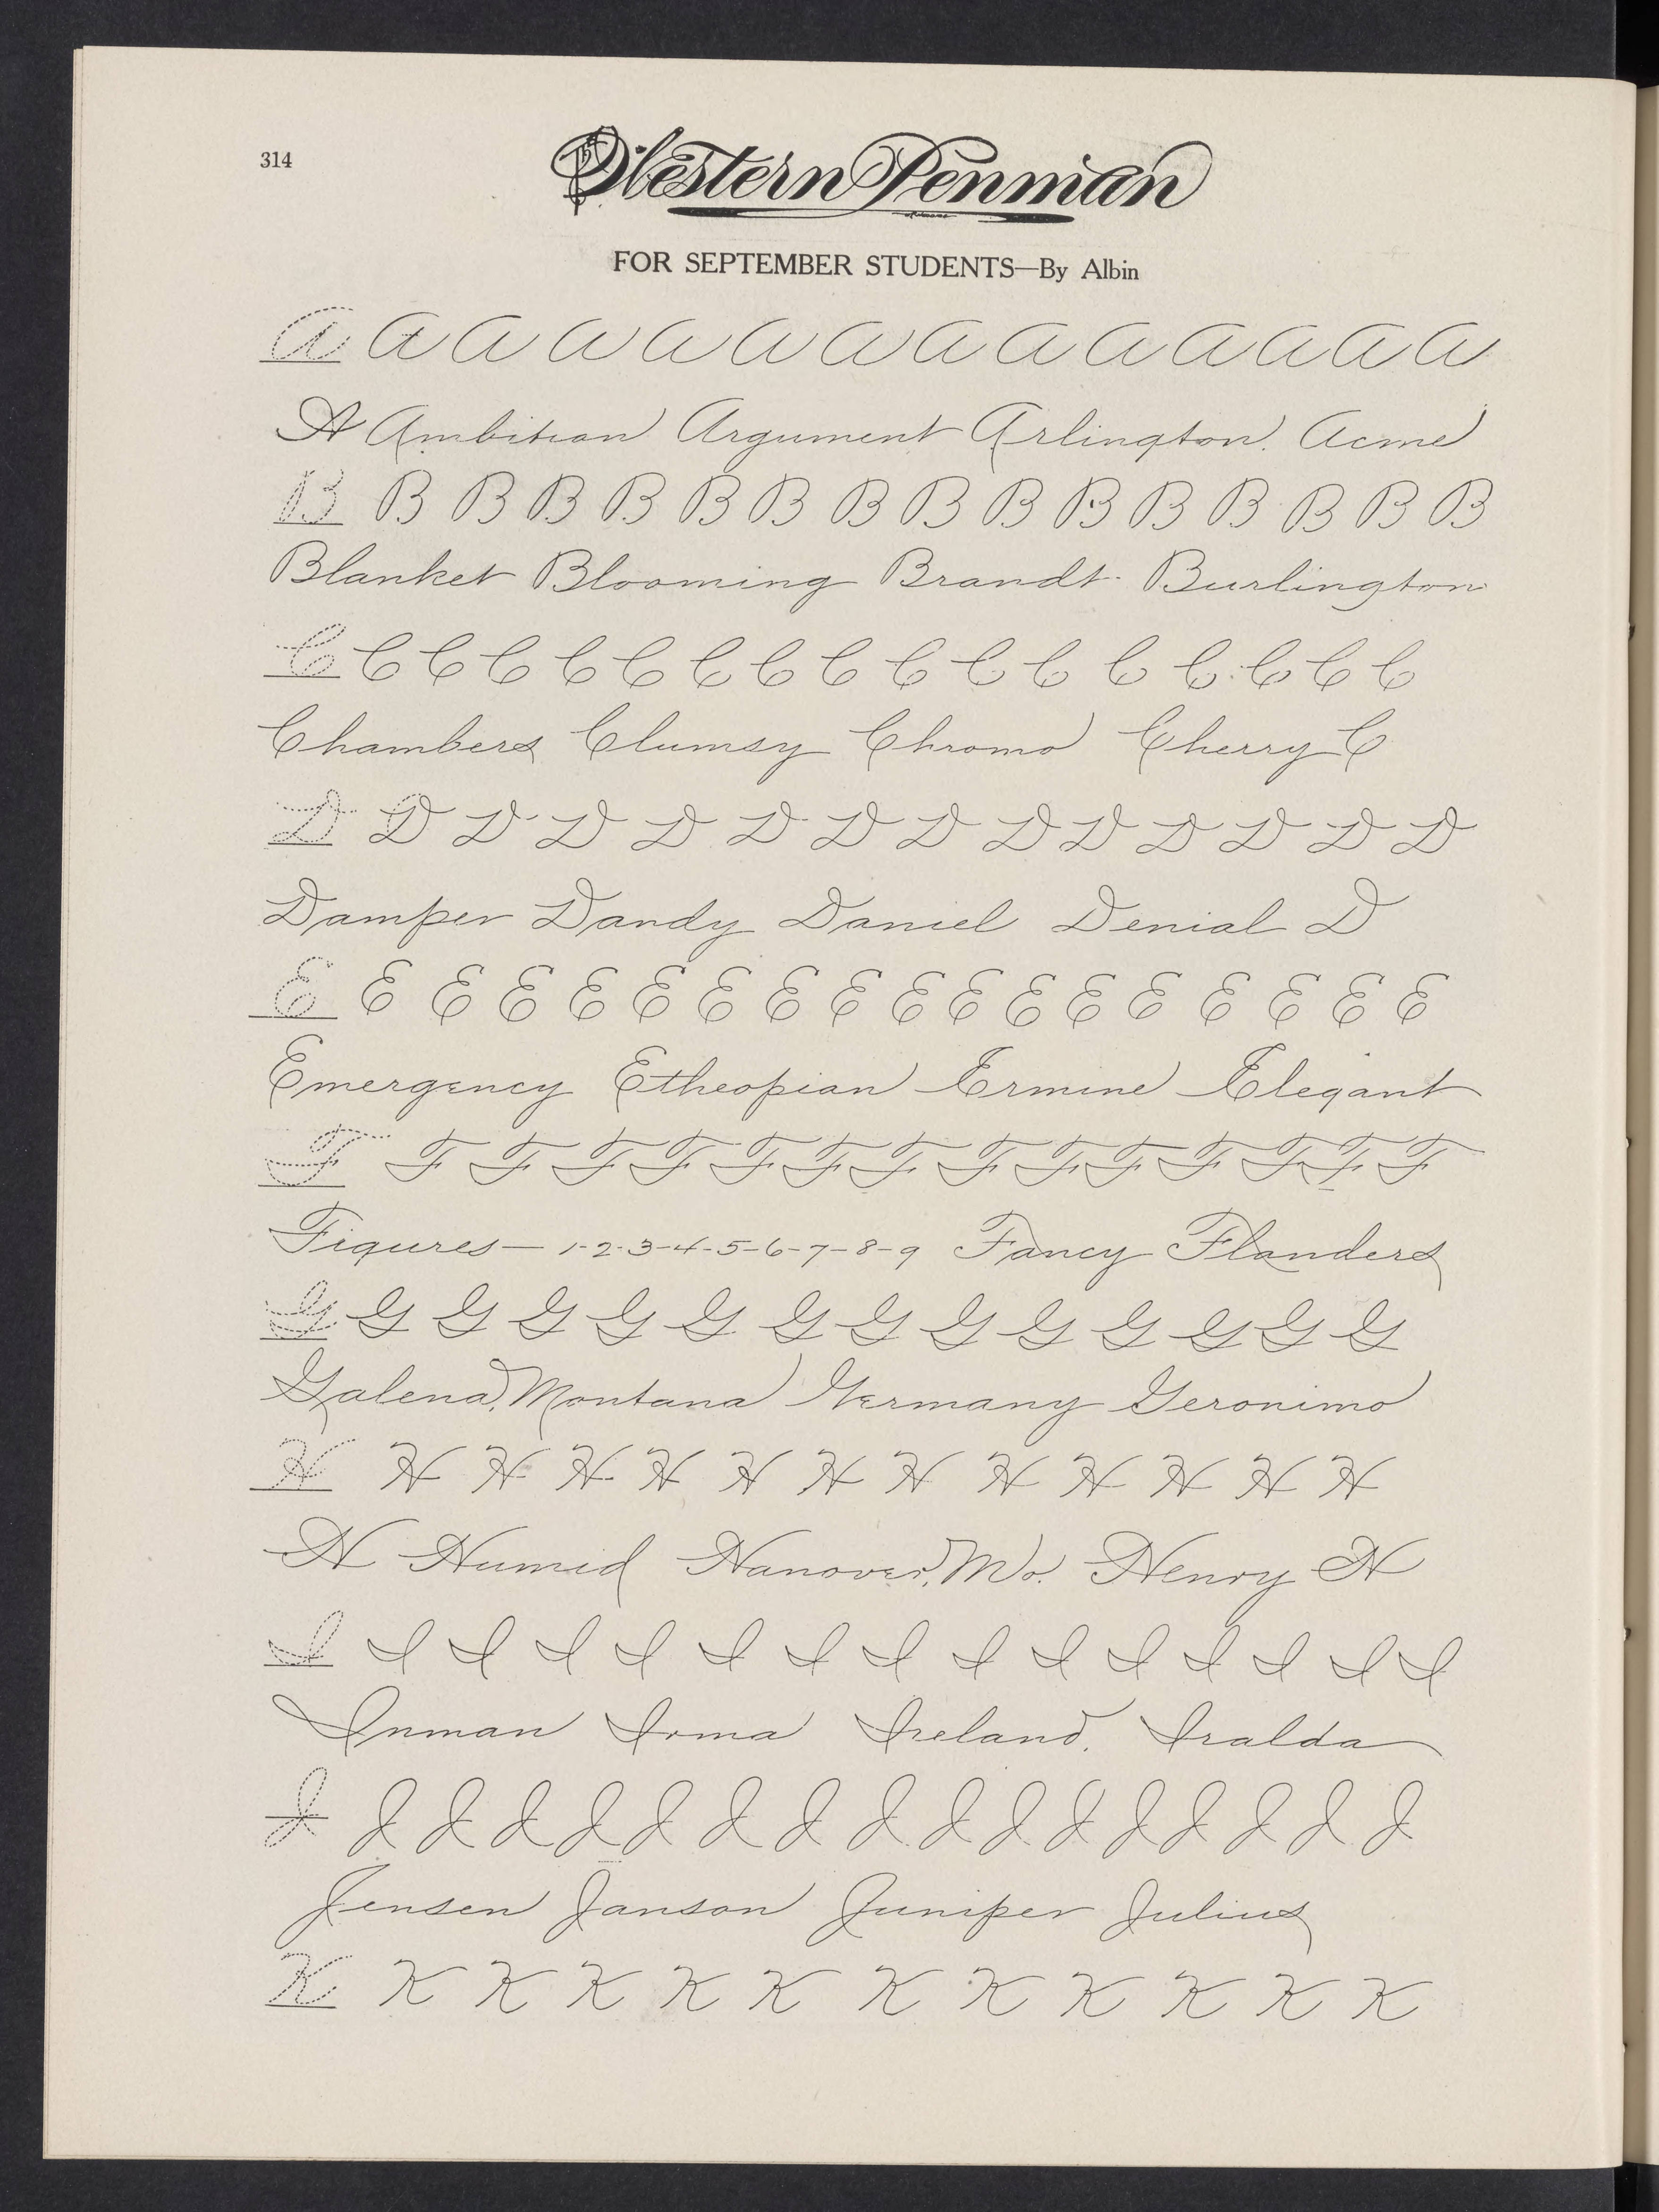 314
Western Penman
FOR SEPTEMBER STUDENTS—By Albin
A A A A A A A A A A A A A A
A Ambition Argument Arlington. Acme
B B B B B B B B B B B B B B B B
Blanket Blooming Brandt Burlington
C C C C C C C C C C C C C C C C C
Chambers Clumsy Chromo Cherry C
D D D D D D D D D D D D D D
Damper Dandy Daniel Denial D
E E E E E E E E E E E E E E E E E E
Emergency Etheopian Ermine Elegant
F F F F F F F F F F F F F F F
Figures— 1-2-3-4-5-6-7-8-9 Fancy Flanders
G G G G G G G G G G G G G G
Galena, Montana Germany Geronimo
H H H H H H H H H H H H H
H Humid Hanover, Mo. Henry H
I I I I I I I I I I I I I I I
Inman Irma Ireland. Iralda
J J J J J J J J J J J J J J J J
Jensen Janson Juniper Julius
K K K K K K K K K K K K